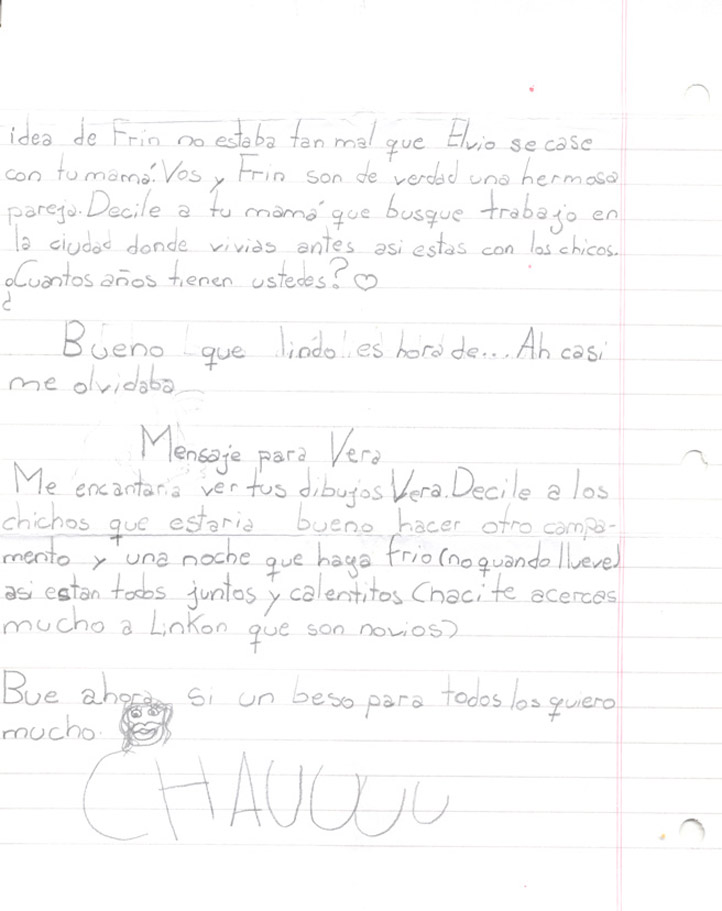 idea de Frin no estaba tan mal que Elvio se case
con tu mamá. Vos y Frin son de verdad una hermosa
pareja. Decile a tu mamá que busque trabajo en
la ciudad donde vivias antes asi estas con los chicos.
¿Cuantos años tienen ustedes? ♡
Bueno que lindo es hora de... Ah casi
me olvidaba
Mensaje para Vera
Me encantaria ver tus dibujos Vera. Decile a los
chichos que estaria bueno hacer otro campa-
mento y una noche que haga frio (no quando llueve)
asi estan todos juntos y calentitos (haci te acercas
mucho a Linkon que son novios)
Bue ahora si un beso para todos los quiero
mucho.
CHAUUUU